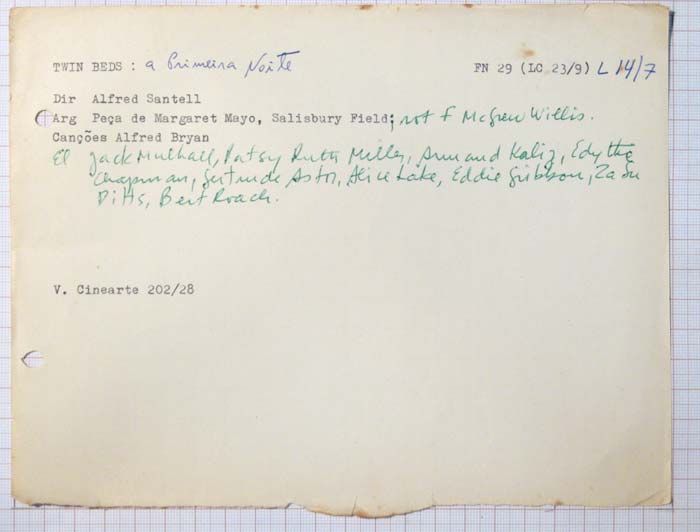 TWIN BEDS : a Primeira Noite FN 29 (LC 23/9) L 14/7
Dir Alfred Santell
Arg Peça de Margaret Mayo, Salisbury Field; rot F McGrew Willis.
Canções Alfred Bryan
El Jack Mulhall, Patsy Ruth Miller, Armand Kaliz, Edythe
Chapman, Gertrude Astor, Alice Lake, Eddie Gribbon, Za Su
Pitts, Bert Roach.
V. Cinearte 202/28